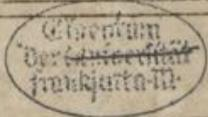 Eigentum
der Universität
Frankfurt a·M·